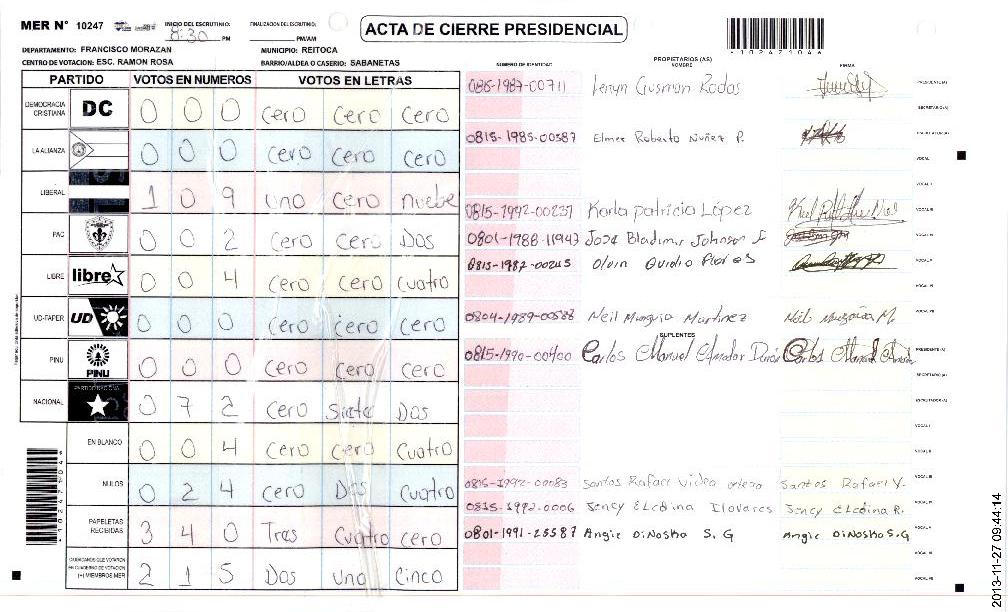 MER N° 10247 INICIO DEL ESCRUTINIO: 8:30 PM FINALIZACION DEL ESCRUTINIO: PM/AM
ACTA DE CIERRE PRESIDENCIAL
102471046
DEPARTAMENTO: FRANCISCO MORAZAN MUNICIPIO: REITOCA
CENTRO DE VOTACION: ESC. RAMON ROSA BARRIO/ALDEA O CASERIO: SABANETAS
PARTIDO VOTOS EN NUMEROS VOTOS EN LETRAS
DEMOCRACIA CRISTIANA DC 0 0 0 cero cero cero
LA ALIANZA 0 0 0 cero cero cero
LIBERAL 1 0 9 uno cero nuebe
PAC 0 0 2 cero cero Dos
LIBRE libre 0 0 4 cero cero cuatro
UD-FAPER UD 0 0 0 cero cero cero
PINU PINU 0 0 0 cero cero cero
NACIONAL PARTIDO NACIONAL 0 7 2 cero Siete Dos
EN BLANCO 0 0 4 cero cero cuatro
NULOS 0 2 4 cero Dos cuatro
PAPELETAS RECIBIDAS 3 4 0 Tres Cuatro cero
CIUDADANOS QUE VOTARON EN CUADERNO DE VOTACION (+) MIEMBROS MER 2 1 5 Dos uno cinco
NUMERO DE IDENTIDAD PROPIETARIOS (AS) NOMBRE FIRMA
0815-1987-00711 Gusman Rodas PRESIDENTE(A)
SECRETARIO(A)
0815-1985-00587 Elmer Roberto Nuñez P. ESCRUTADOR(A)
VOCAL
VOCAL II
0815-1992-00237 Karla patricia López VOCAL III
0801-1988-11947 Jose Bladimir Johnson VOCAL IV
0815-1987-00245 Olvin Ovidio Flores VOCAL V
VOCAL VI
0804-1989-00588 Neil Munguia Martinez Neil Munguia M. VOCAL VII
SUPLENTES
0815-1990-00400 Carlos Manuel Amador Carlos Manuel Amador PRESIDENTE(A)
SECRETARIO(A)
ESCRUTADOR(A)
VOCAL I
VOCAL II
0815-1992-00083 Santos Rafael Santos Rafael V. VOCAL III
0815-1992-0006 Jency Elcdina Jency Elcdina R. VOCAL IV
0801-1991-25587 Angie DiNoska S. G Angie DiNoska S.G VOCAL V
VOCAL VI
VOCAL VII
2013-11-27 09:44:14